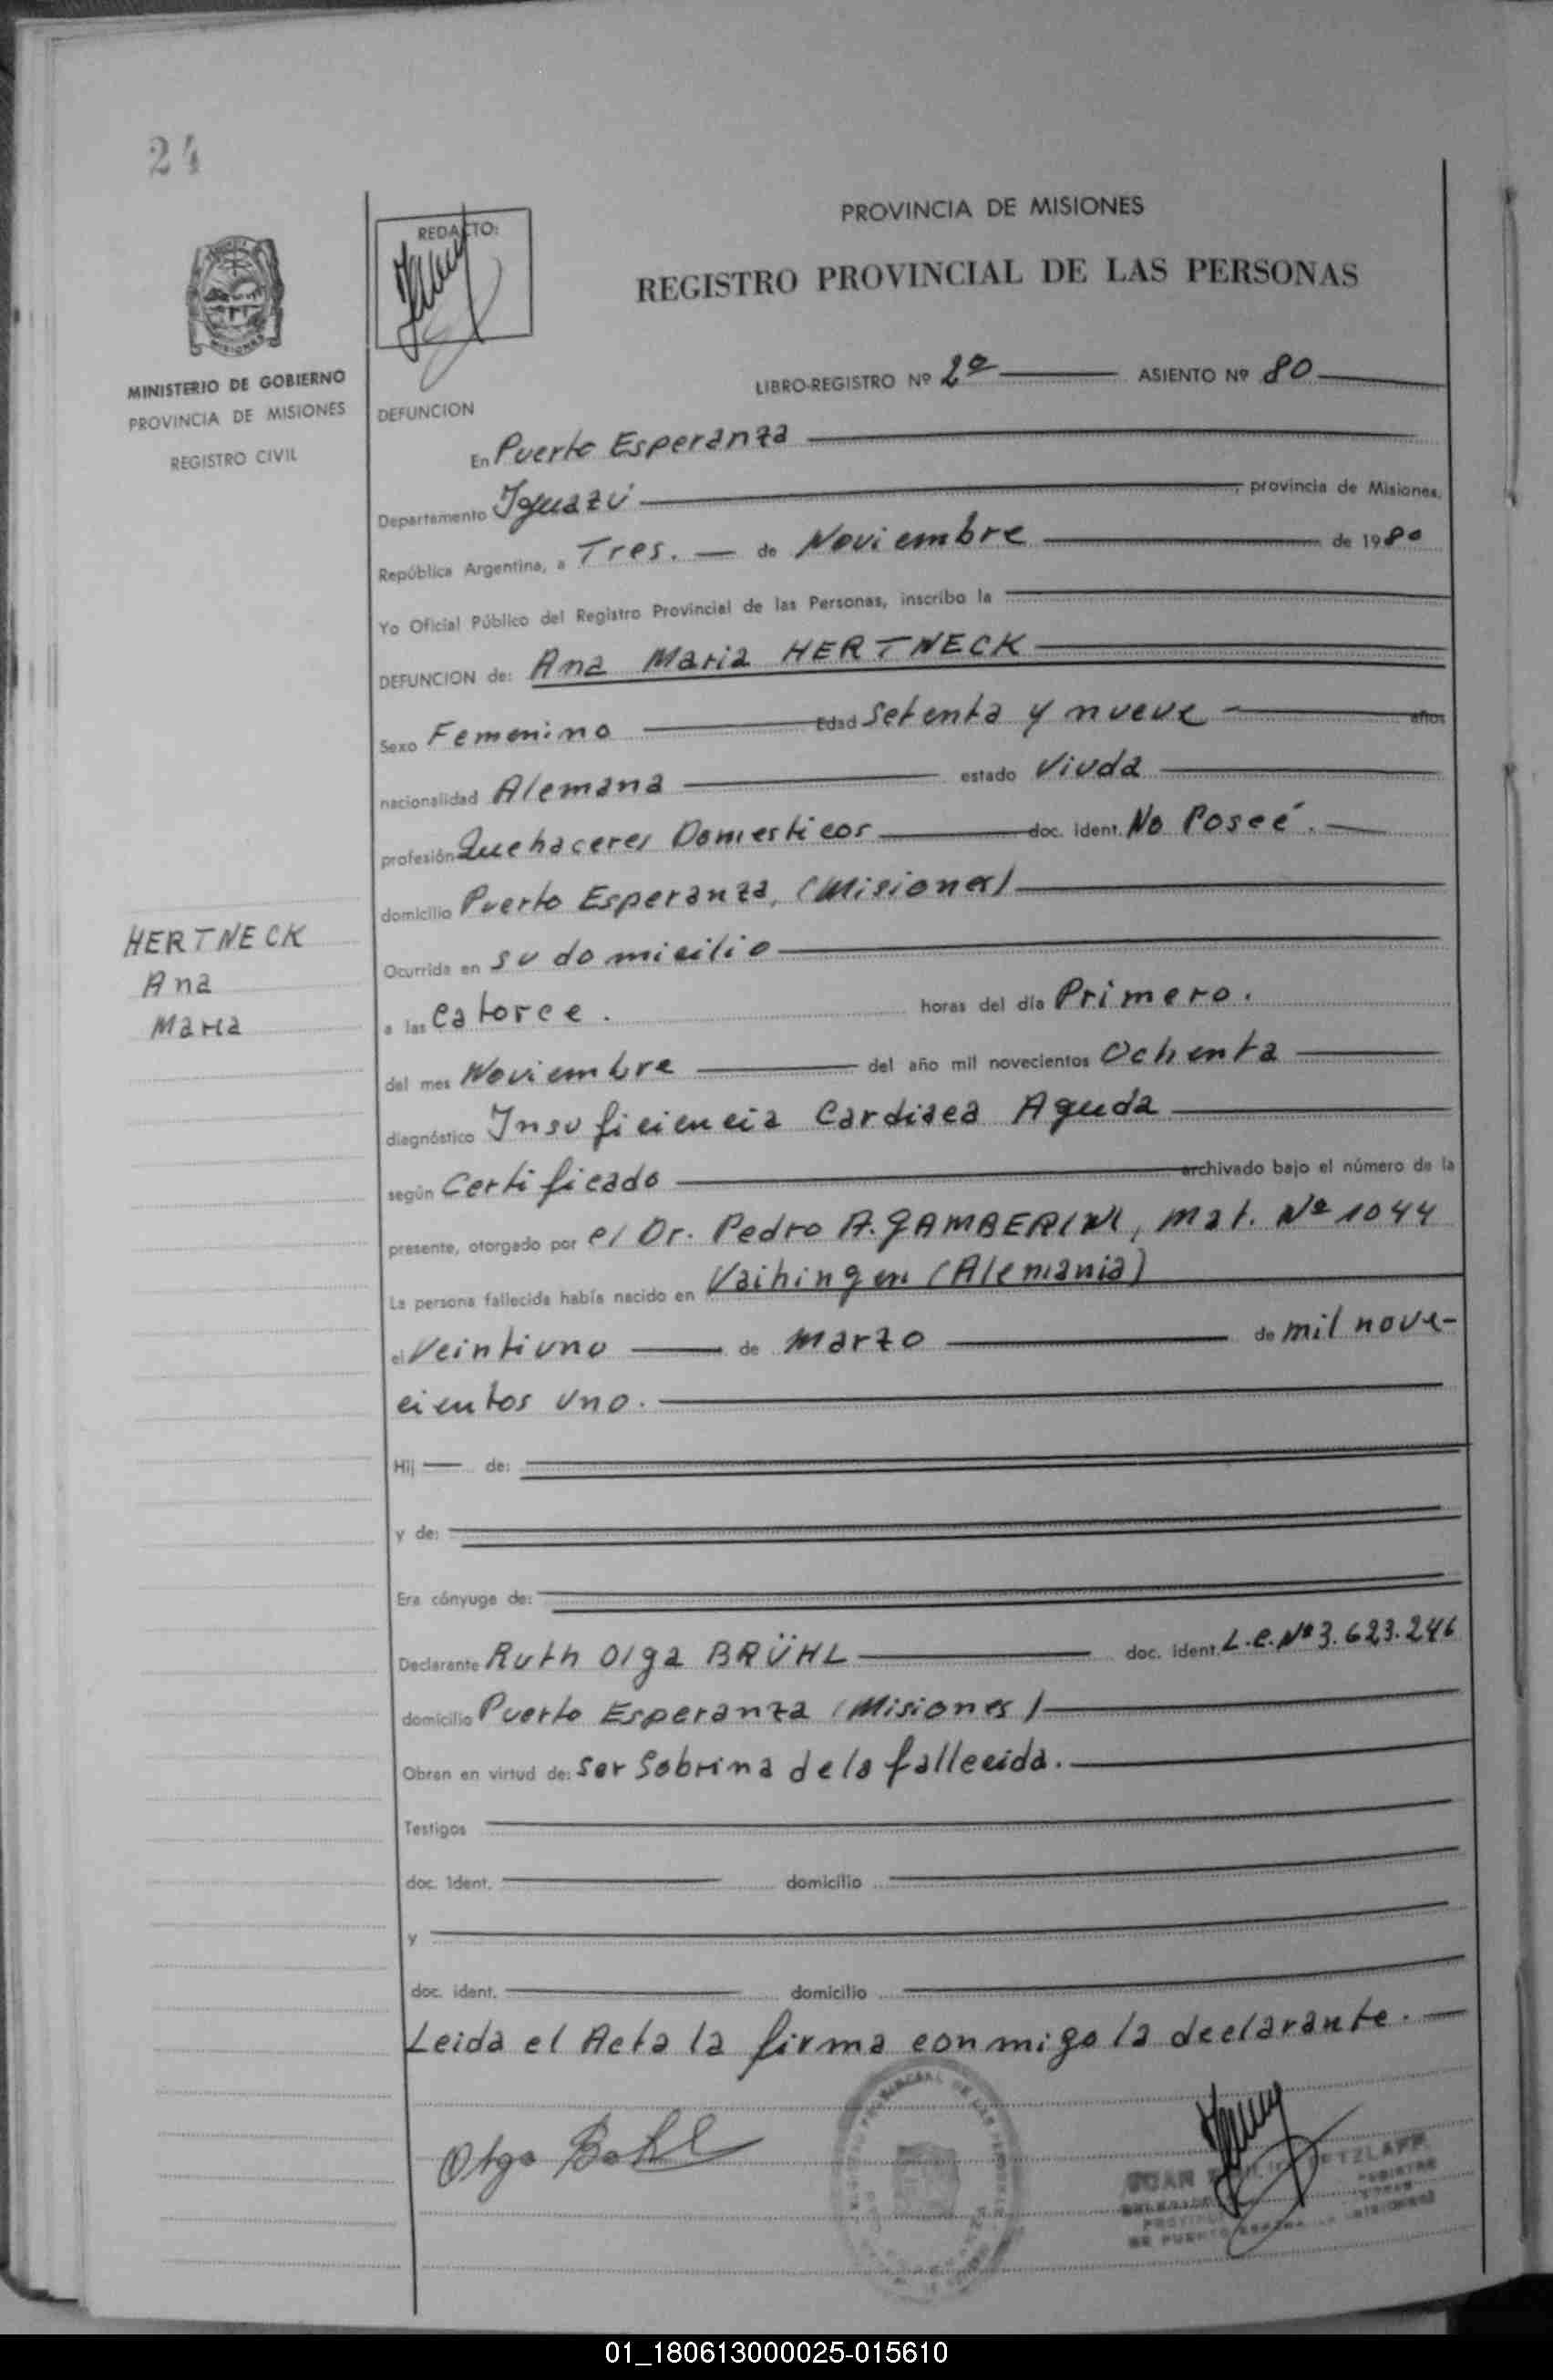 24
REDACTO:
PROVINCIA DE MISIONES
REGISTRO PROVINCIAL DE LAS PERSONAS
MISIONES
MINISTERIO DE GOBIERNO
PROVINCIA DE MISIONES
REGISTRO CIVIL
LIBRO-REGISTRO Nº 2º ASIENTO Nº 80
DEFUNCION
En Puerto Esperanza
Departamento Iguazú, provincia de Misiones,
República Argentina, a Tres. de Noviembre de 1980
Yo Oficial Público del Registro Provincial de las Personas, inscribo la
DEFUNCION de: Ana Maria HERTNECK
Sexo Femenino Edad Setenta y nueve años
nacionalidad Alemana estado Viuda
profesión Quehaceres Domesticos doc. ident. No Poseé.
domicilio Puerto Esperanza, (Misiones)
HERTNECK
Ana
Maria
Ocurrida en su domicilio
a las Catorce. horas del día Primero.
del mes Noviembre del año mil novecientos Ochenta
diagnóstico Insuficiencia Cardiaca Aguda
según Certificado archivado bajo el número de la
presente, otorgado por el Dr. Pedro A. GAMBERINI, Mat. Nº 1044
La persona fallecida había nacido en Vaihingen (Alemania)
el Veintiuno de Marzo de mil nove-
cientos uno.
Hij de:
y de:
Era cónyuge de:
Declarante Ruth Olga BRÜHL doc. ident. L.C. Nº 3.623.246
domicilio Puerto Esperanza (Misiones)
Obran en virtud de: ser Sobrina de la fallecida.
Testigos
doc. Ident. domicilio
y
doc. ident. domicilio
Leida el Acta la firma conmigo la declarante.
Olga
01_180613000025-015610